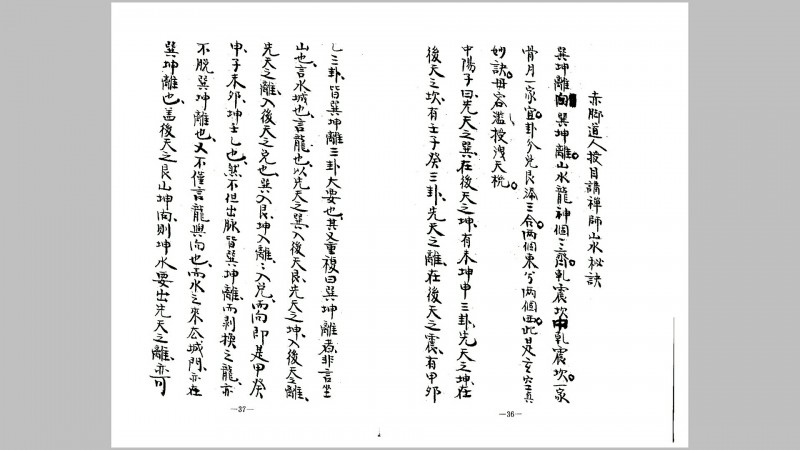 赤脚道人授目講禪師山水秘訣
巽坤離向巽坤離。山水龍神個三齊。乾震坎中乾震坎。一家
骨月一家宜。卦分兌艮添三合。兩個東兮兩個西。此是玄空真
妙訣。毋容濫授洩天機。
中陽子曰。先天之巽在後天之坤、有未坤申三卦。先天之坤、在
後天之坎、有壬子癸三卦、先天之離、在後天之震、有甲卯
乙三卦、皆巽坤離三卦大要也、其又重複曰巽坤離者、非言坐
山也、言水城也、言龍也、以先天之巽入後天艮、先天之坤入後天離、
先天之離入後天之兌也、巽入艮、坤入離、入兌、而向即是甲癸
申、子未卯、坤壬乙也、然不但出脉皆巽坤離、而剝換之龍、亦
不脱巽坤離也、又不僅言龍與向也、而水之來去城門、亦在
巽坤離也、盖後天之艮山坤向、則坤水要出先天之離、亦可
—36—
—37—